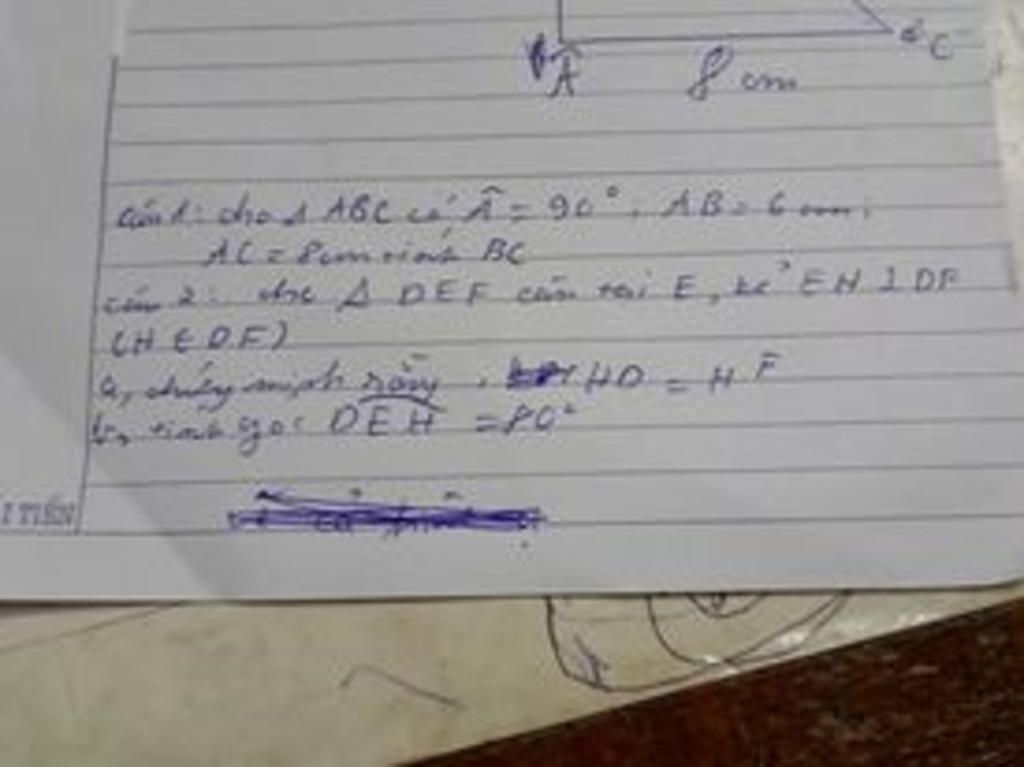 C
A
8 cm
câu 1: cho Δ ABC có Â = 90°, AB = 6 cm,
AC = 8cm tính BC
câu 2: cho Δ DEF cân tại E, kẻ EH ⊥ DF
(H ∈ DF)
a, chứng minh rằng, HD = HF
b, tính góc DEH = 80°
I TIẾN